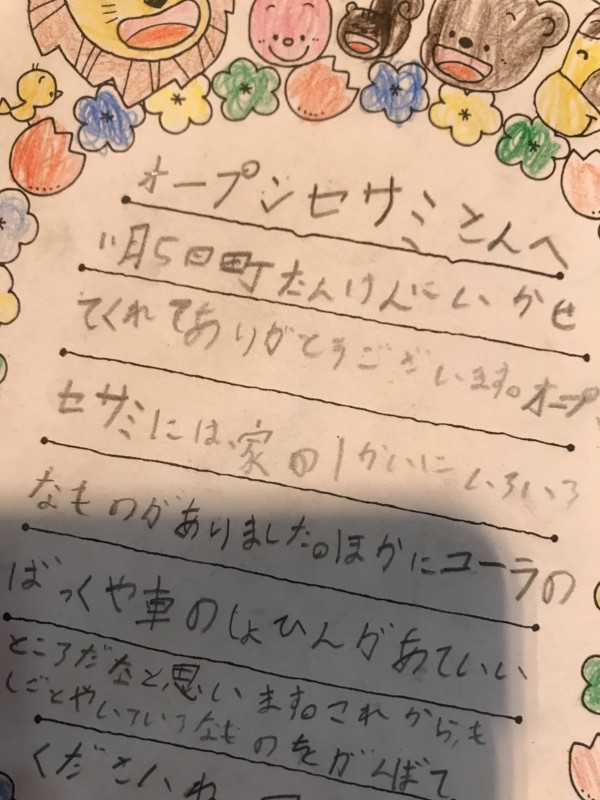 オープンセサミさんへ
11月5日町たんけんにいかせ
てくれてありがとうございます。オープ
セサミには、家の1かいにいろいろ
なものがありました。ほかにコーラの
ばっくや車のしょひんがあていい
ところだなと思います。これからも
しごとやいろいろなものをがんばて
くださいね